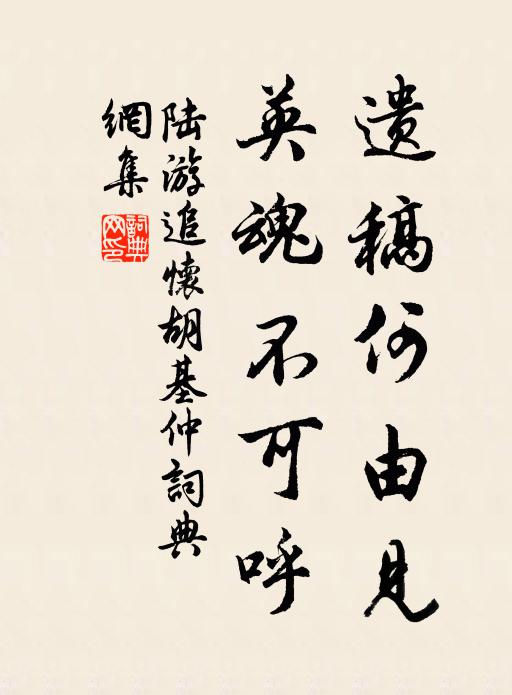 遗稿何由见
英魂不可呼
陆游追懷胡基仲詞典
網集
詞典
网印